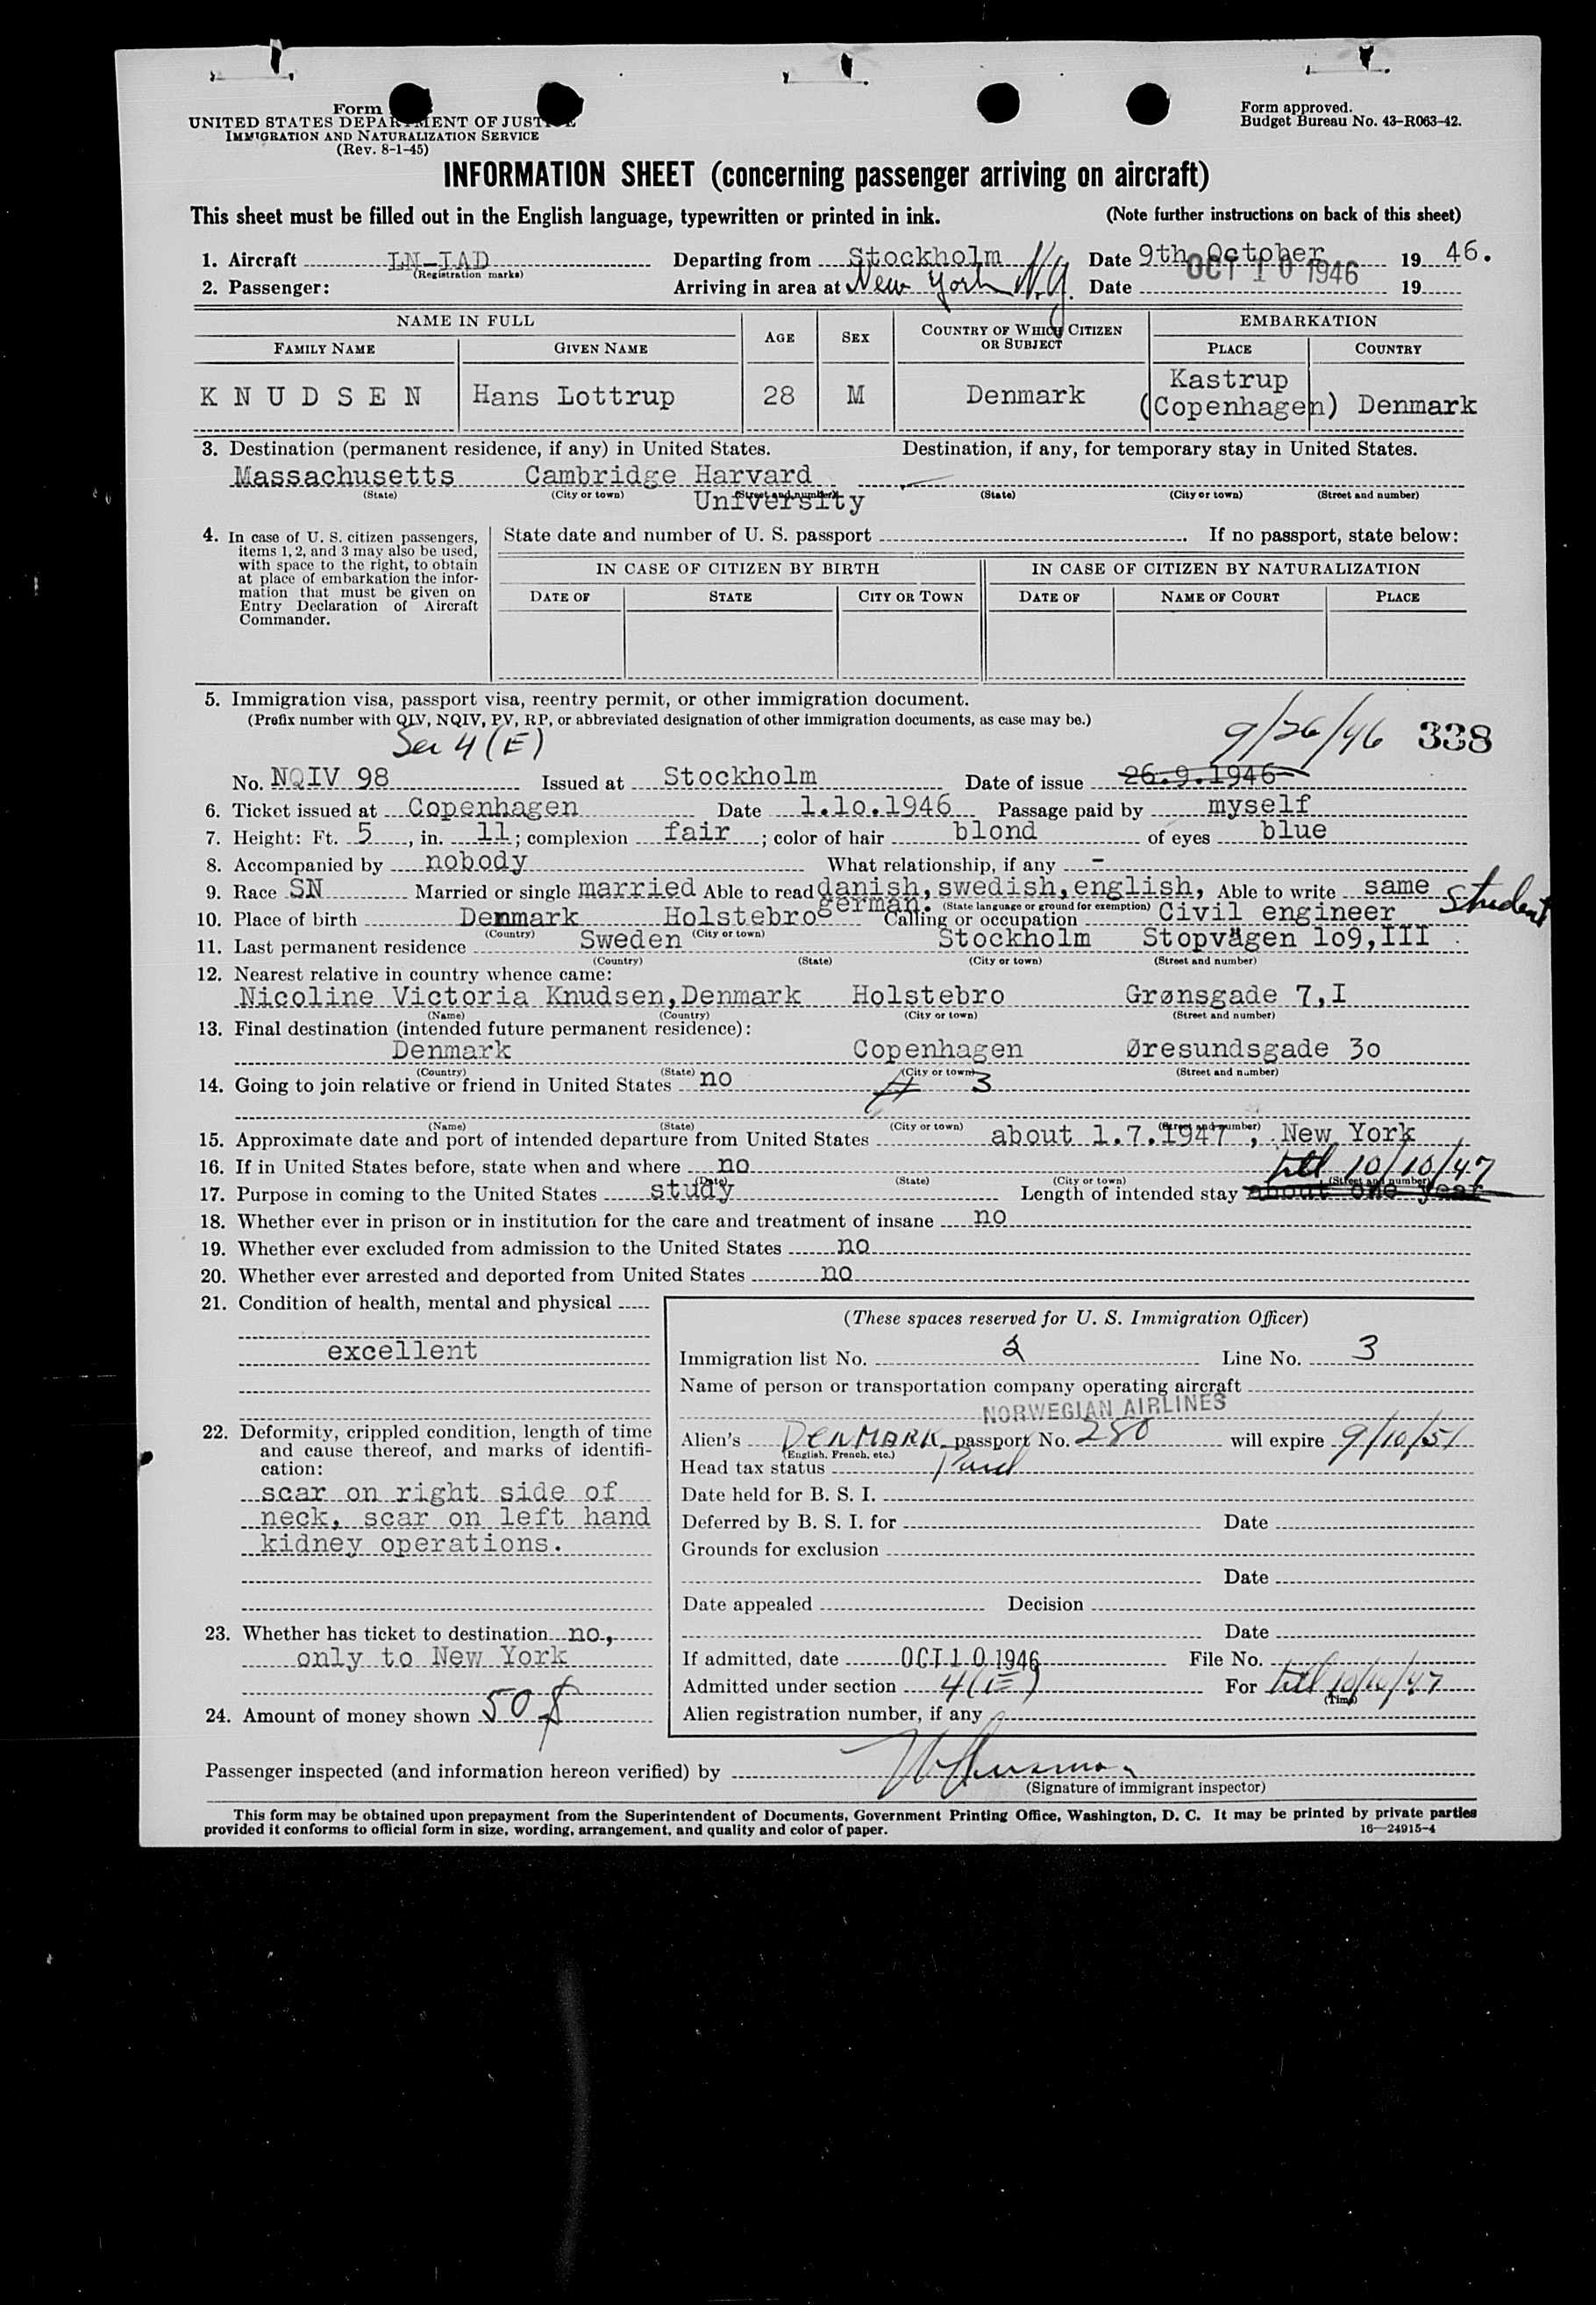 Form
UNITED STATES DEPARTMENT OF JUSTICE
IMMIGRATION AND NATURALIZATION SERVICE
(Rev. 8-1-45)
Form approved.
Budget Bureau No. 43-R063-42.
INFORMATION SHEET (concerning passenger arriving on aircraft)
This sheet must be filled out in the English language, typewritten or printed in ink. (Note further instructions on back of this sheet)
1. Aircraft LN-IAD Departing from Stockholm Date 9th October 19 46.
(Registration marks)
2. Passenger: Arriving in area at New York N.Y. Date OCT 10 1946 19
NAME IN FULL AGE SEX COUNTRY OF WHICH CITIZEN OR SUBJECT EMBARKATION
FAMILY NAME GIVEN NAME PLACE COUNTRY
KNUDSEN Hans Lottrup 28 M Denmark Kastrup (Copenhagen) Denmark
3. Destination (permanent residence, if any) in United States. Destination, if any, for temporary stay in United States.
Massachusetts Cambridge Harvard University
(State) (City or town) (Street and number) (State) (City or town) (Street and number)
4. In case of U. S. citizen passengers, items 1, 2, and 3 may also be used, with space to the right, to obtain at place of embarkation the information that must be given on Entry Declaration of Aircraft Commander.
State date and number of U. S. passport If no passport, state below:
IN CASE OF CITIZEN BY BIRTH IN CASE OF CITIZEN BY NATURALIZATION
DATE OF STATE CITY OR TOWN DATE OF NAME OF COURT PLACE
5. Immigration visa, passport visa, reentry permit, or other immigration document.
(Prefix number with QIV, NQIV, PV, RP, or abbreviated designation of other immigration documents, as case may be.)
Sec 4 (E) 9/26/46 338
No. NQIV 98 Issued at Stockholm Date of issue 26.9.1946
6. Ticket issued at Copenhagen Date 1.10.1946 Passage paid by myself
7. Height: Ft. 5, in. 11; complexion fair; color of hair blond of eyes blue
8. Accompanied by nobody What relationship, if any -
9. Race SN Married or single married Able to read danish, swedish, english, german. Able to write same
(State language or ground for exemption)
student
10. Place of birth Denmark Holstebro Calling or occupation Civil engineer
(Country) (City or town)
11. Last permanent residence Sweden Stockholm Stopvägen 109, III
(Country) (State) (City or town) (Street and number)
12. Nearest relative in country whence came:
Nicoline Victoria Knudsen, Denmark Holstebro Grønsgade 7, I
(Name) (Country) (City or town) (Street and number)
13. Final destination (intended future permanent residence):
Denmark Copenhagen Øresundsgade 30
(Country) (State) (City or town) (Street and number)
14. Going to join relative or friend in United States no 3
(Name) (State) (City or town) (Street and number)
15. Approximate date and port of intended departure from United States about 1.7.1947, New York
16. If in United States before, state when and where no
(Date) (State) (City or town) (Street and number)
till 10/10/47
17. Purpose in coming to the United States study Length of intended stay about one year
18. Whether ever in prison or in institution for the care and treatment of insane no
19. Whether ever excluded from admission to the United States no
20. Whether ever arrested and deported from United States no
21. Condition of health, mental and physical
excellent
22. Deformity, crippled condition, length of time and cause thereof, and marks of identification:
scar on right side of
neck, scar on left hand
kidney operations.
23. Whether has ticket to destination no,
only to New York
24. Amount of money shown 50 $
(These spaces reserved for U. S. Immigration Officer)
Immigration list No. 2 Line No. 3
Name of person or transportation company operating aircraft
NORWEGIAN AIRLINES
Alien's DENMARK passport No. 280 will expire 9/10/51
(English, French, etc.)
Head tax status Paid
Date held for B. S. I.
Deferred by B. S. I. for Date
Grounds for exclusion
Date
Date appealed Decision
Date
If admitted, date OCT 10 1946 File No.
Admitted under section 4(E) For till 10/10/47
(Time)
Alien registration number, if any
Passenger inspected (and information hereon verified) by
(Signature of immigrant inspector)
This form may be obtained upon prepayment from the Superintendent of Documents, Government Printing Office, Washington, D. C. It may be printed by private parties
provided it conforms to official form in size, wording, arrangement, and quality and color of paper. 16—24915-4